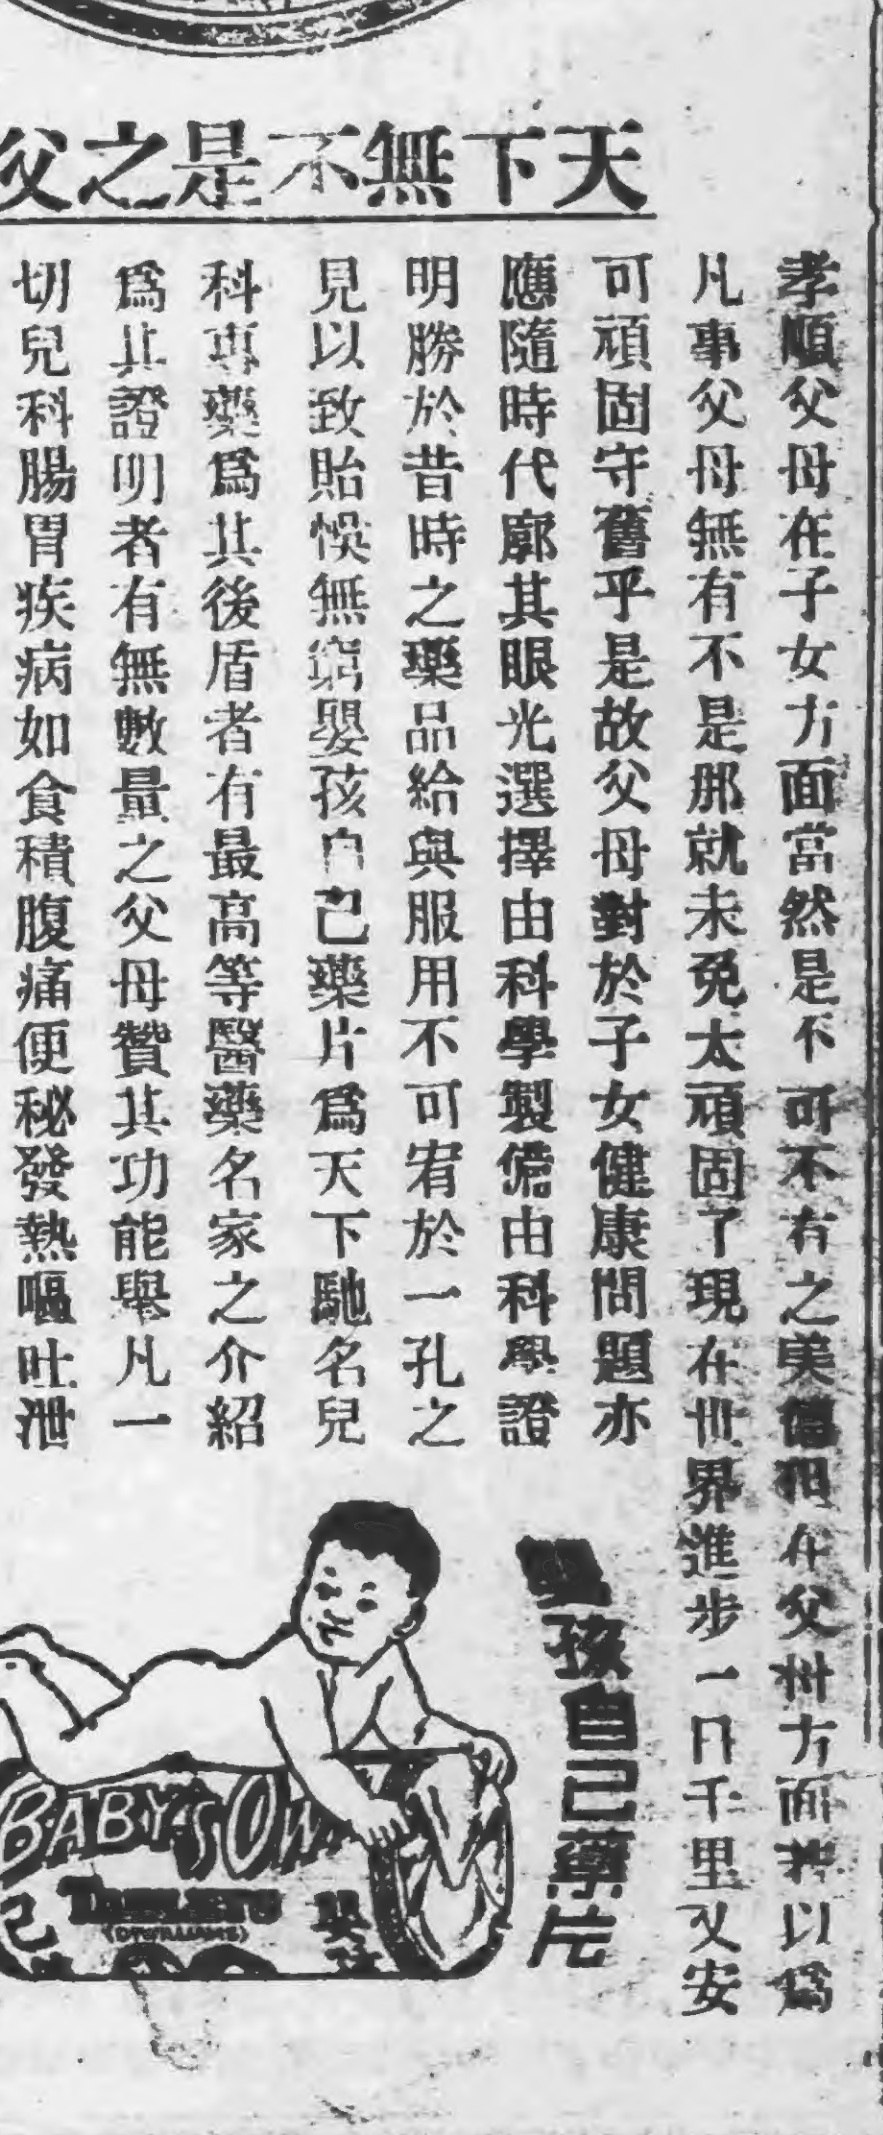 天下無不是之父
孝順父母在子女方面當然是不可不有之美德但在父母方面若以爲
凡事父母無有不是那就未免太頑固了現在世界進步一日千里又安
可頑固守舊乎是故父母對於子女健康問題亦
應隨時代廓其眼光選擇由科學製備由科學證
明勝於昔時之藥品給與服用不可宥於一孔之
見以致貽悞無窮嬰孩自己藥片爲天下馳名兒
科專藥爲其後盾者有最高等醫藥名家之介紹
爲其證明者有無數量之父母贊其功能舉凡一
切兒科腸胃疾病如食積腹痛便秘發熱嘔吐泄
嬰孩自己藥片
BABY'S OWN
TABLETS
(DR WILLIAMS)
嬰孩
己